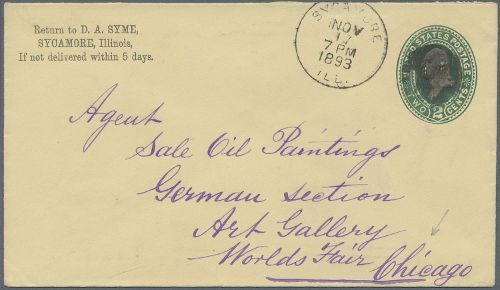 Return to D. A. SYME,
SYCAMORE, Illinois,
If not delivered within 5 days.
SYCAMORE
NOV
17
7 PM
1893
ILL.
STATES POSTAGE
TWO 2 CENTS
Agent
Sale Oil Paintings
German Section
Art Gallery
Worlds Fair Chicago